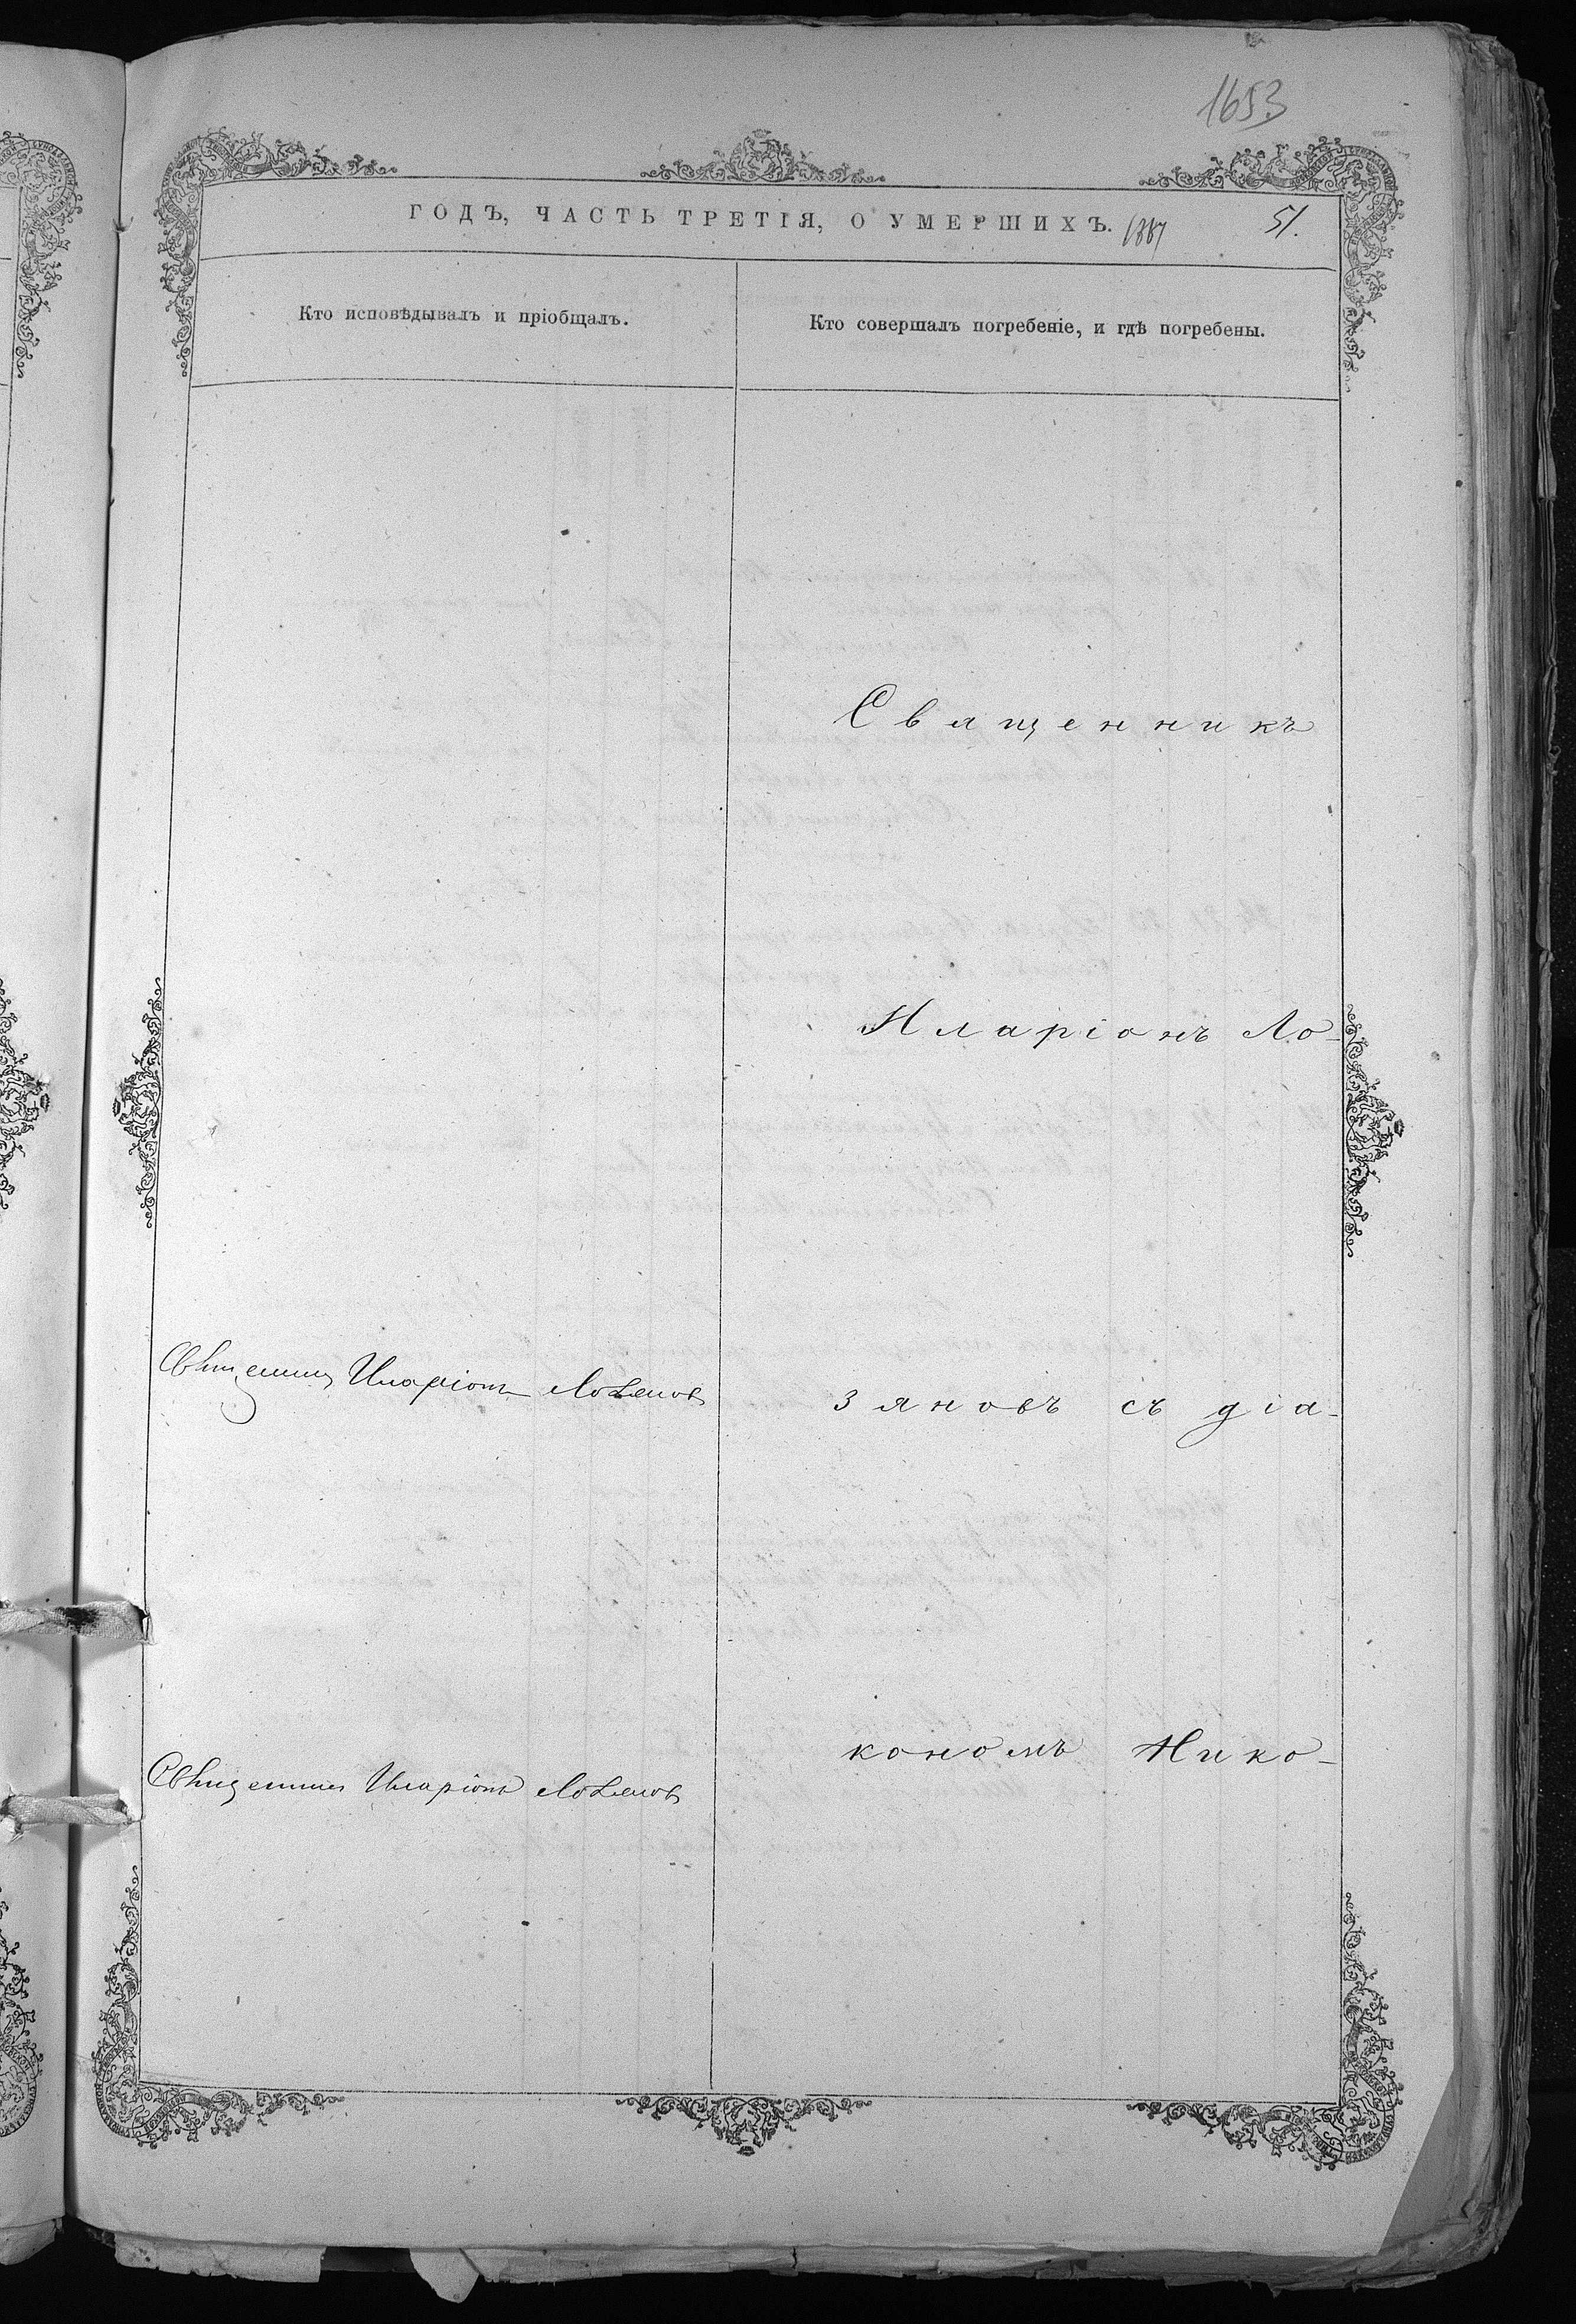 1653
ГОДЪ, ЧАСТЬ ТРЕТІЯ, О УМЕРШИХЪ. 1887 51.
Кто исповѣдывалъ и пріобщалъ.
Кто совершалъ погребеніе, и гдѣ погребены.
Священникъ
Иларіонъ Ло-
Священникъ Иларіонъ Лозянов
зяновъ съ діа-
кономъ Нико-
Священникъ Иларіонъ Лозянов